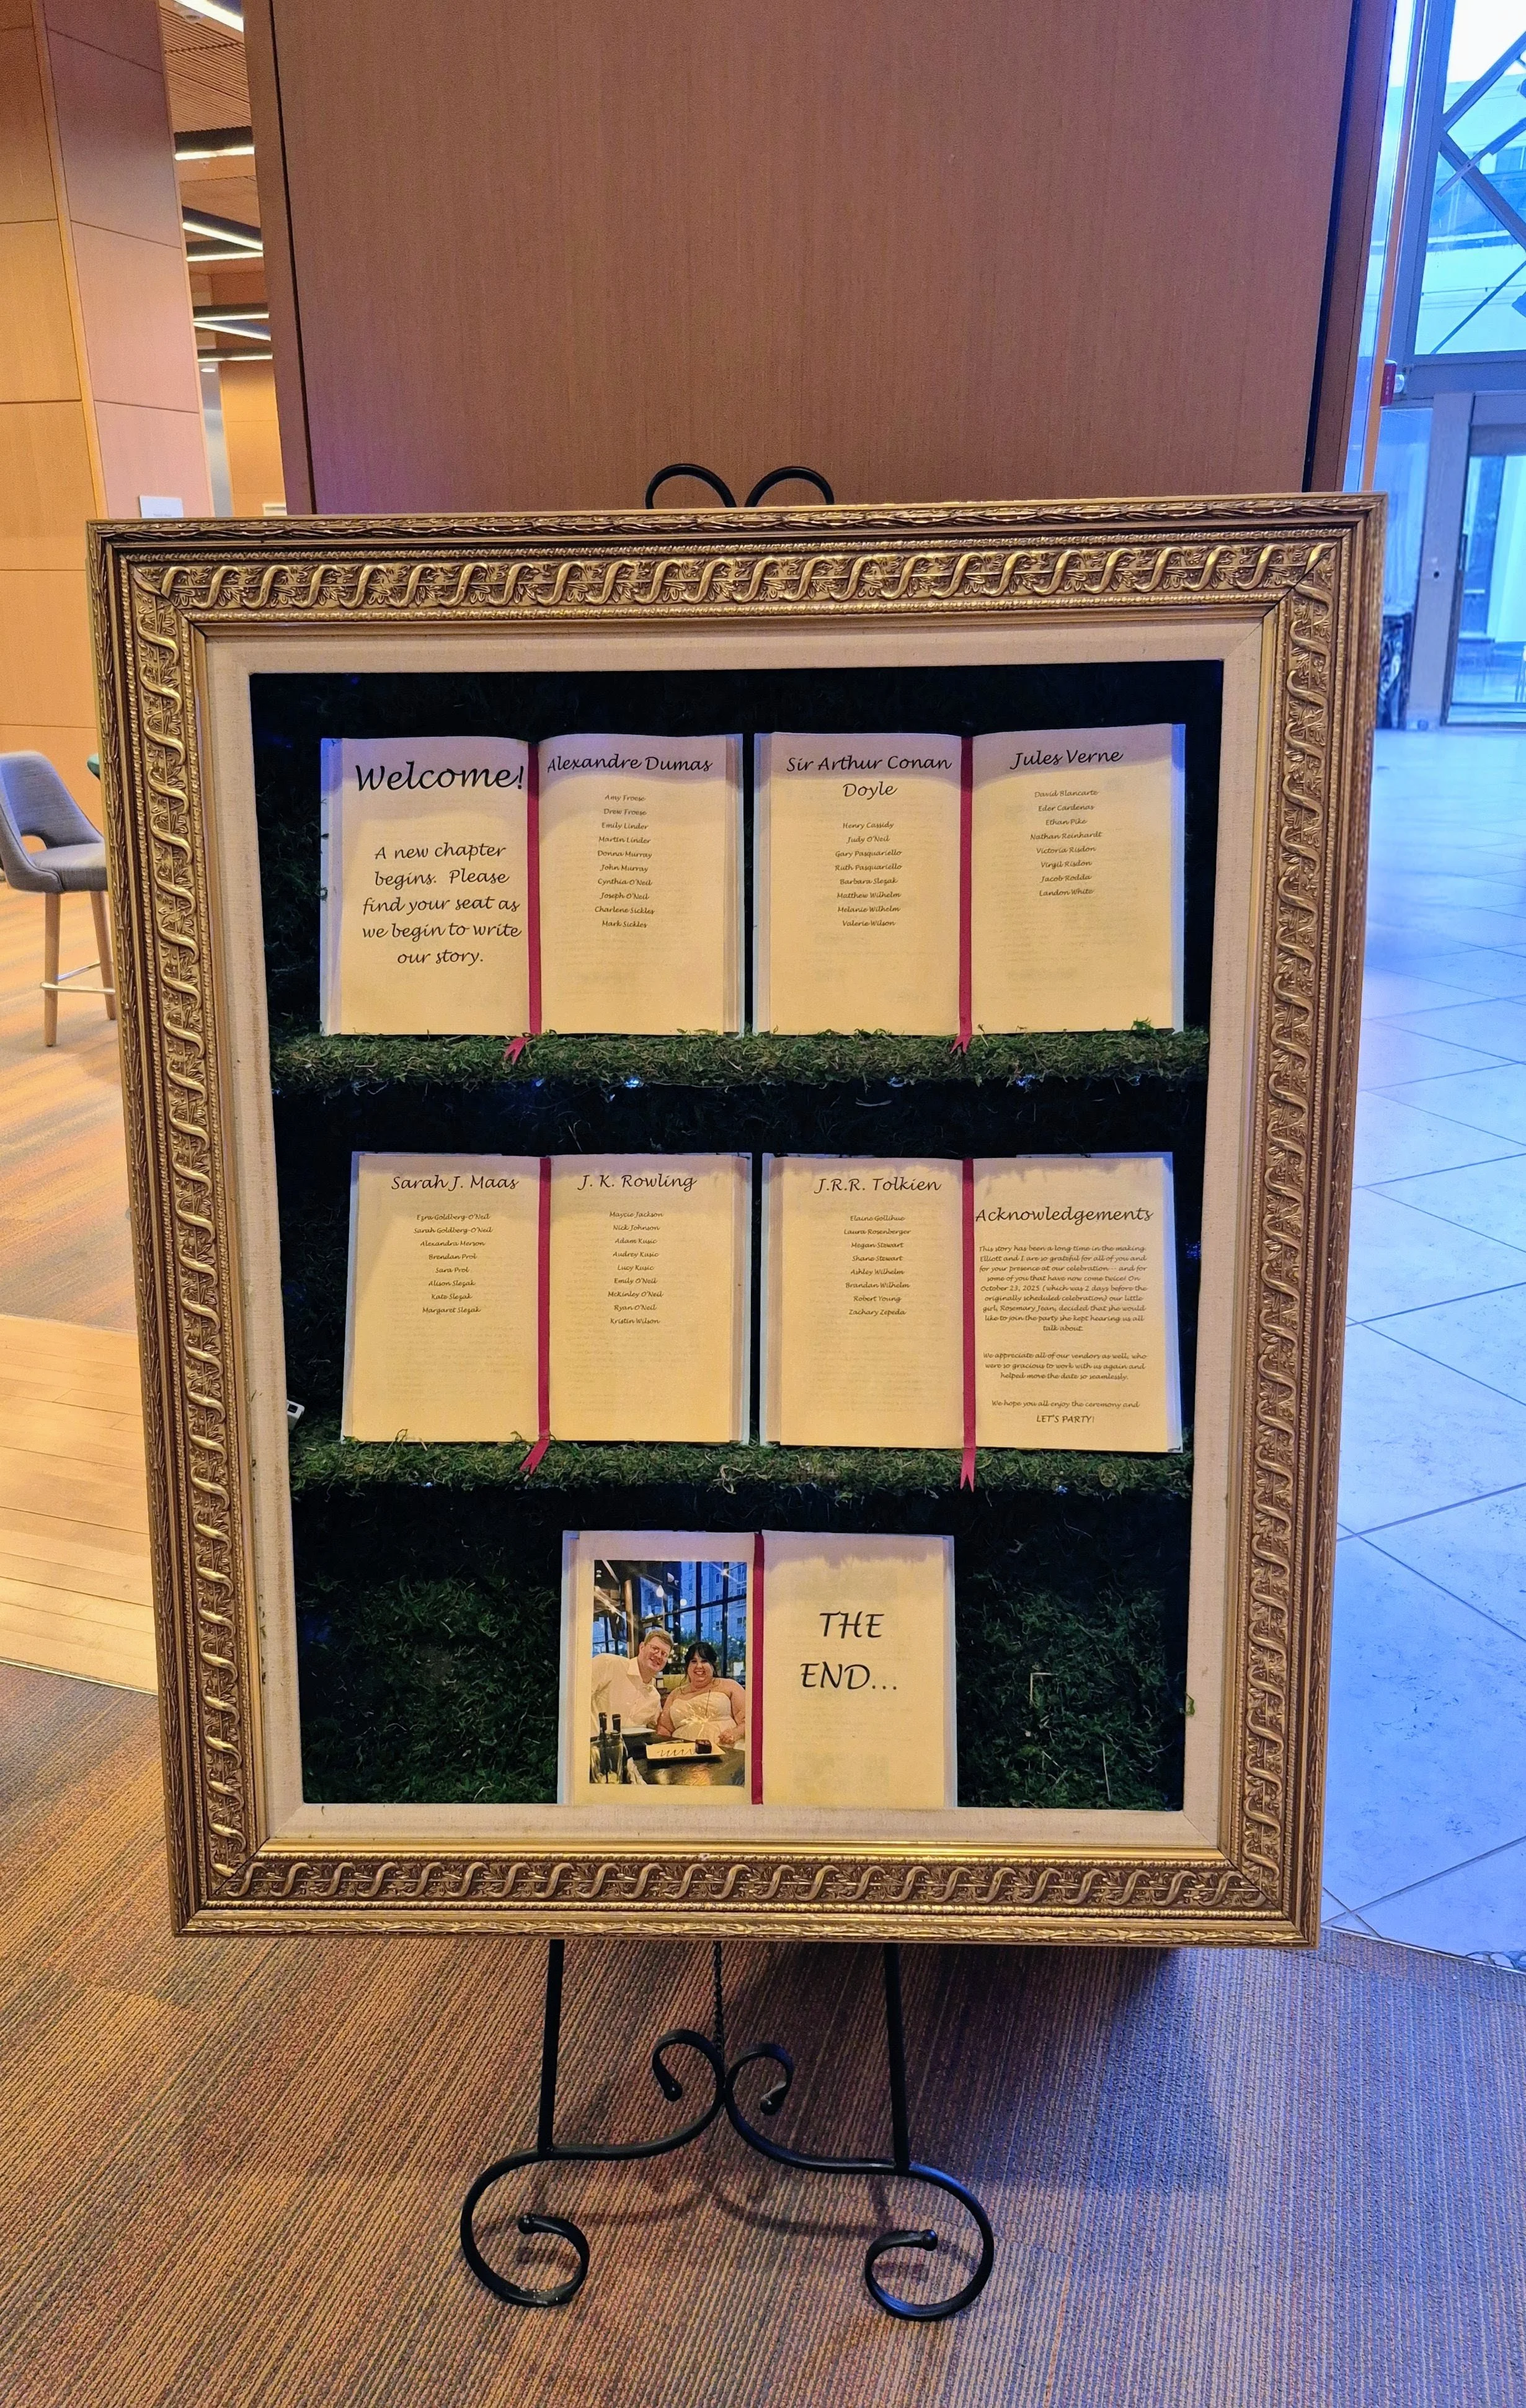 Welcome!
A new chapter
begins. Please
find your seat as
we begin to write
our story.
Alexandre Dumas
Amy Froese
Drew Froese
Emily Linder
Martin Linder
Donna Murray
John Murray
Cynthia O'Neil
Joseph O'Neil
Charlene Sickles
Mark Sickles
Sir Arthur Conan
Doyle
Henry Cassidy
Judy O'Neil
Gary Pasquariello
Ruth Pasquariello
Barbara Slezak
Matthew Wilhelm
Melanie Wilhelm
Valerie Wilson
Jules Verne
David Blancarte
Eder Cardenas
Ethan Pike
Nathan Reinhardt
Victoria Risdon
Virgil Risdon
Jacob Rodda
Landon White
Sarah J. Maas
Ezra Goldberg-O'Neil
Sarah Goldberg-O'Neil
Alexandra Merson
Brendan Prol
Sara Prol
Alison Slezak
Kate Slezak
Margaret Slezak
J. K. Rowling
Maycie Jackson
Nick Johnson
Adam Kusic
Audrey Kusic
Lucy Kusic
Emily O'Neil
McKinley O'Neil
Ryan O'Neil
Kristin Wilson
J.R.R. Tolkien
Elaine Gollihue
Laura Rosenberger
Megan Stewart
Shane Stewart
Ashley Wilhelm
Brandan Wilhelm
Robert Young
Zachary Zepeda
Acknowledgements
This story has been a long time in the making.
Elliott and I are so grateful for all of you and
for your presence at our celebration -- and for
some of you that have now come twice! On
October 23, 2025 (which was 2 days before the
originally scheduled celebration) our little
girl, Rosemary Jean, decided that she would
like to join the party she kept hearing us all
talk about.
We appreciate all of our vendors as well, who
were so gracious to work with us again and
helped move the date so seamlessly.
We hope you all enjoy the ceremony and
LET'S PARTY!
THE
END...